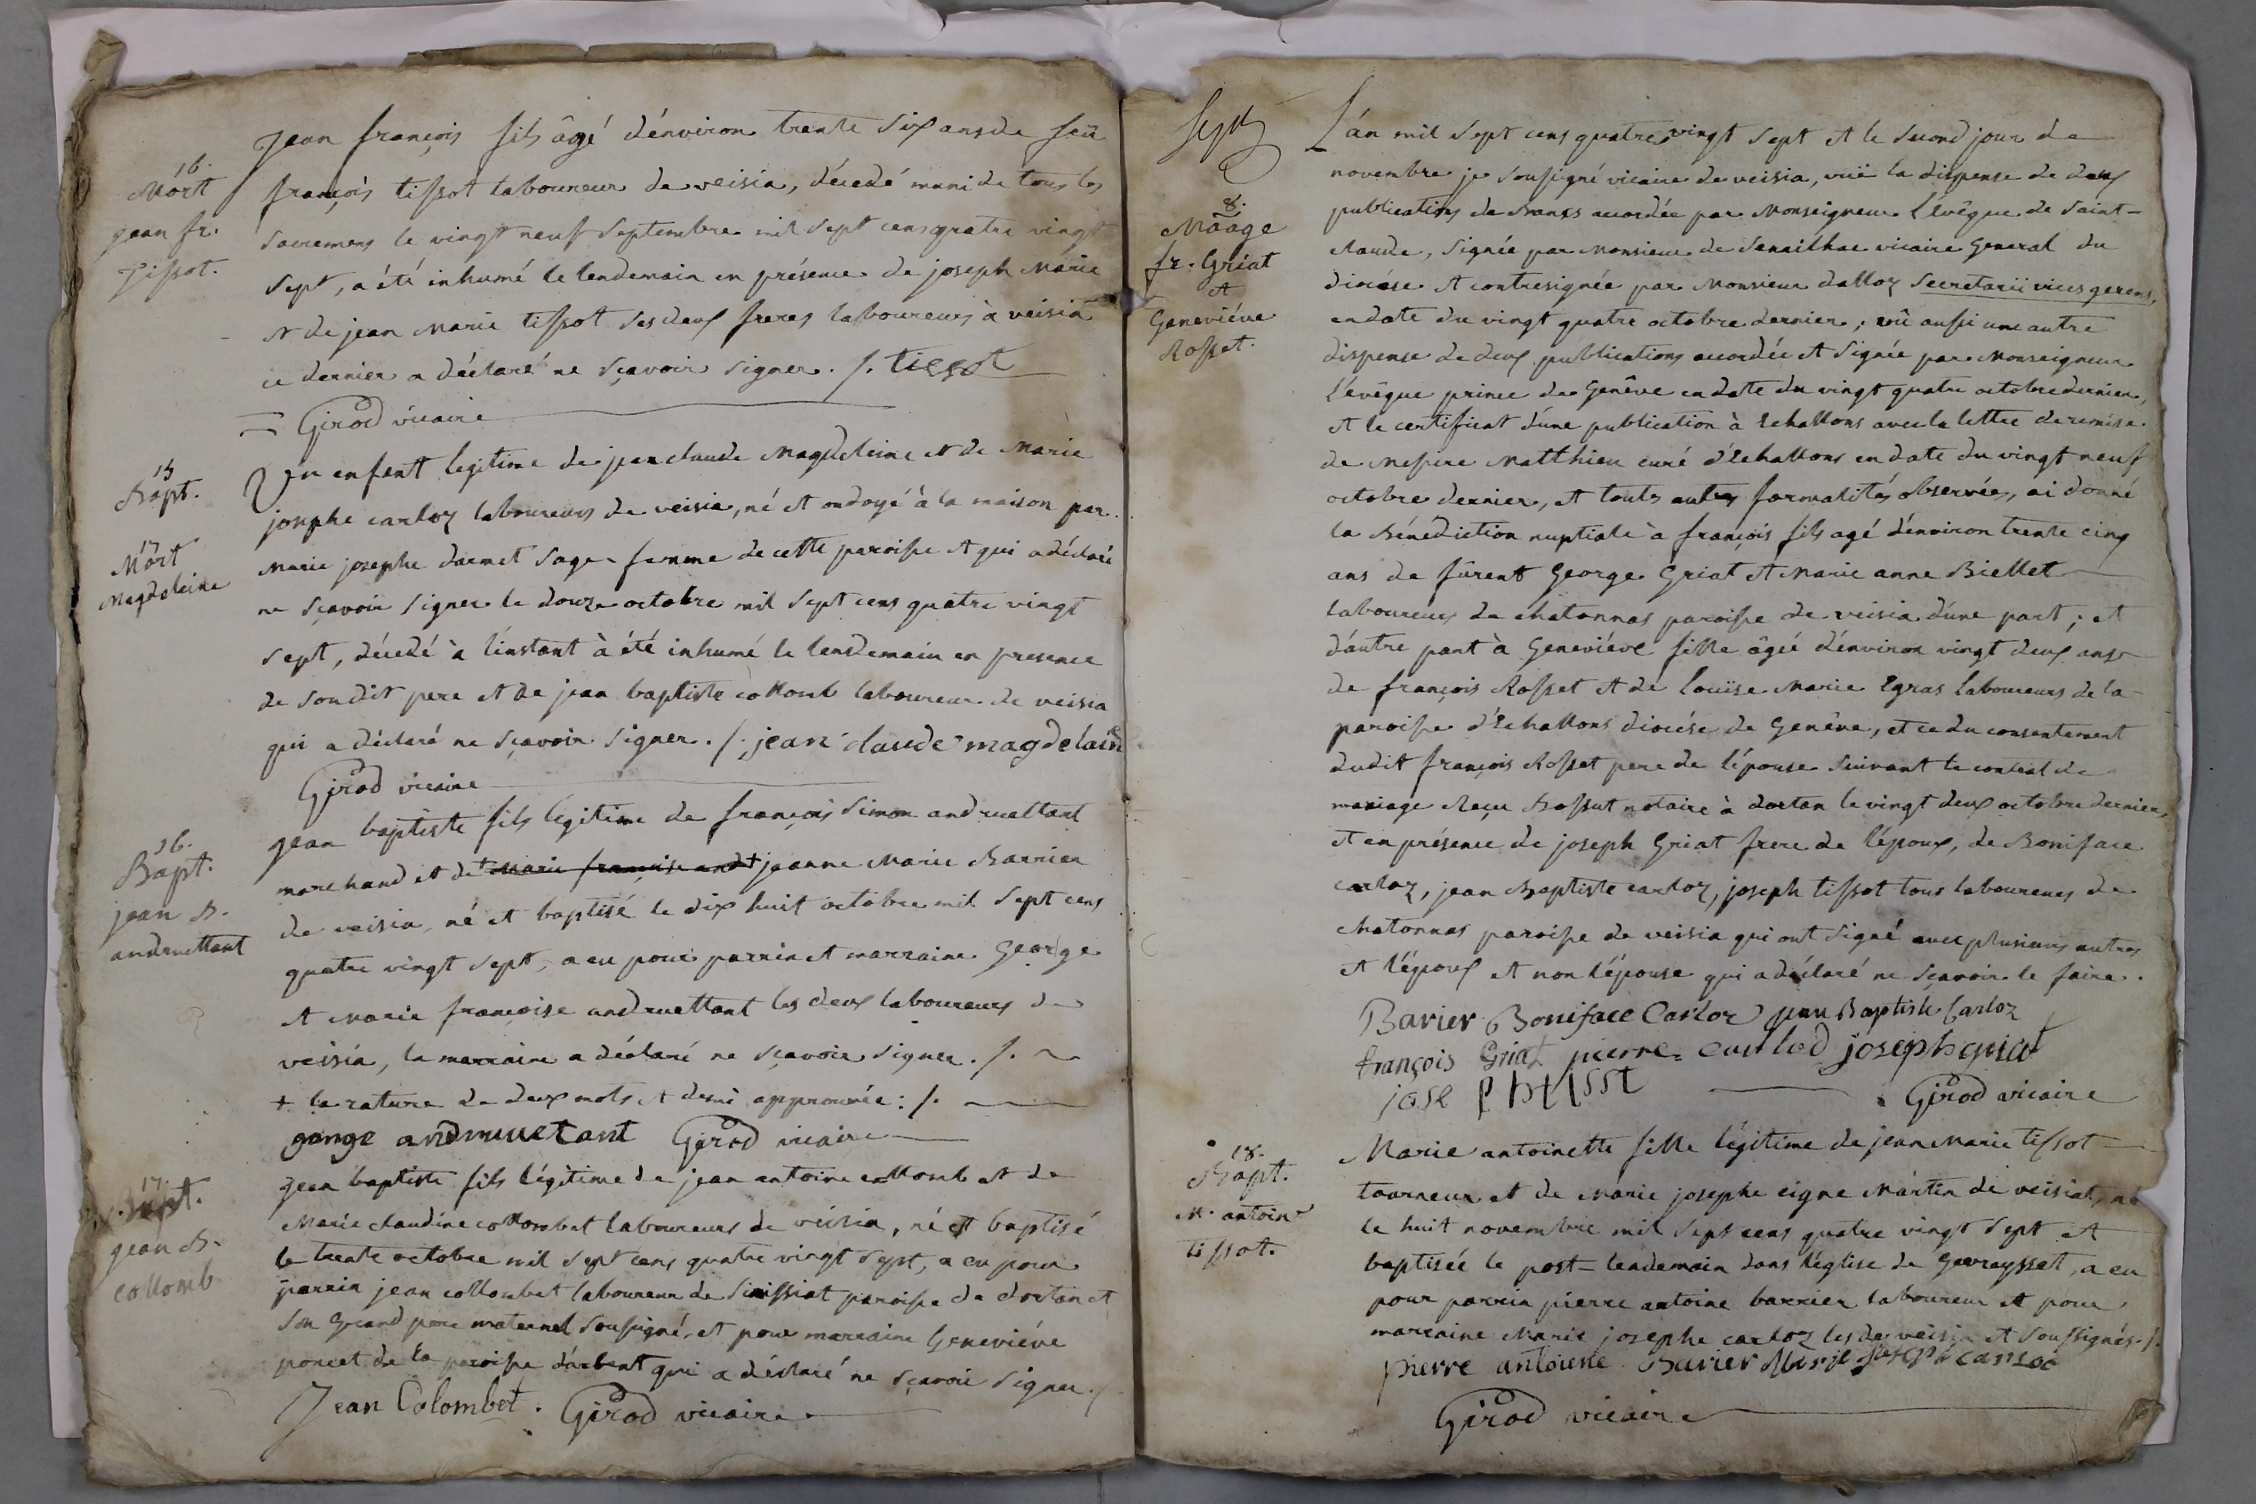 16.
Mort
jean fr.
Tissot.
Jean françois fils âgé d'environ trente six ans de feü
françois tissot laboureur de veisia, décedé muni de tous les
sacremens le vingt neuf septembre mil sept cens quatre vingt
sept, a été inhumé le lendemain en présence de joseph Marie
et de jean Marie tissot ses deux freres laboureurs à veisia
ce dernier a déclaré ne sçavoir signer. /. tissot
Girod vicaire
15
Bapt.
17
Mort
Magdeleine
Un enfant legitime de jean claude Magdeleine et de Marie
josephe carloz laboureurs de veisia, né et ondoyé à la maison par
Marie josephe dacmet sage-femme de cette paroisse et qui a déclaré
ne sçavoir signer le douze octobre mil sept cens quatre vingt
sept, décedé à l'instant à été inhumé le lendemain en presence
de son dit pere et de jean baptiste collomb laboureur de veisia
qui a déclaré ne sçavoir signer. /. jean claude magdelain
Girod vicaire
16.
Bapt.
jean B.
andruettant
Jean baptiste fils légitime de françois Simon andruettant
marchand et de + Marie françoise and + jeanne Marie Barrier
de veisia, né et baptisé le dix huit octobre mil sept cens
quatre vingt sept, a eu pour parrin et marraine George
et Marie françoise andruettant les deux laboureurs de
veisia, la marraine a déclaré ne sçavoir signer. /.
+ la rature de deux mots et demi approuvée: /.
gorge andruuetant Girod vicaire
17.
Bapt.
jean B.
collomb
Jean baptiste fils légitime de jean antoine collomb et de
Marie claudine collombet laboureurs de veisia, né et baptisé
le trente octobre mil sept cens quatre vingt sept, a eu pour
parrin jean collombet laboureur de Sinissiat paroisse de dortan et
son Grand pere maternel soussigné, et pour marraine Geneviéve
poncet de la paroisse d'arbent qui a déclaré ne sçavoir signer. /.
Jean Colombet. Girod vicaire
sept
8.
Maage
fr. Griat
et
Geneviéve
Rosset.
L'an mil sept cens quatre vingt sept et le second jour de
novembre je soussigné vicaire de veisia, vuë la dispense de deux
publications de Banss accordée par Monseigneur l'évêque de Saint-
claude, signée par Monsieur de Senailhac vicaire General du
diocése et contresignée par Monsieur dalloz secretarii vices gerens,
en date du vingt quatre octobre dernier, vû aussi une autre
dispense de deux publications accordée et signée par Monseigneur
l'évêque prince de Genêve en date du vingt quatre octobre dernier,
et le certificat d'une publication à Echallons avec la lettre de remise
de Messire Matthieu curé d'Echallons en date du vingt neuf
octobre dernier, et touts autres formalités observées, ai donné
la Bénédiction nuptiale à françois fils agé d'environ trente cinq
ans de fûrent George Griat et Marie anne Biellet
laboureurs de chatonnas paroisse de veisia d'une part; et
d'autre part à Geneviéve fille âgée d'environ vingt deux ans
de françois Rosset et de louïse Marie Egras laboureurs de la
paroisse d'Echallons diocése de Genêve, et ce du consentement
dudit françois Rosset pere de l'épouse suivant le contrat de
mariage Reçu Bossut notaire à dortan le vingt deux octobre dernier,
et en présence de joseph Griat frere de l'époux, de Boniface
carloz, jean Baptiste carloz, joseph tissot tous laboureurs de
chatonnas paroisse de veisia qui ont signé avec plusieurs autres
et l'époux et non l'épouse qui a déclaré ne sçavoir le faire.
Barier Boniface Carloz jean Baptiste Carloz
françois Griat pierre joseph griat
Girod vicaire
18.
Bapt.
M. antoin.
tissot.
Marie antoinette fille légitime de jean Marie tissot
tourneur et de Marie josephe cigne Martin de veisiat, né
le huit novembre mil sept cens quatre vingt sept et
baptisée le post-lendemain dans l'église de Gevreysset, a eu
pour parrin pierre antoine barrier laboureur et pour
marraine Marie josephe carloz les de veisia et soussignés. /.
pierre antoiene Barier Marie
Girod vicaire